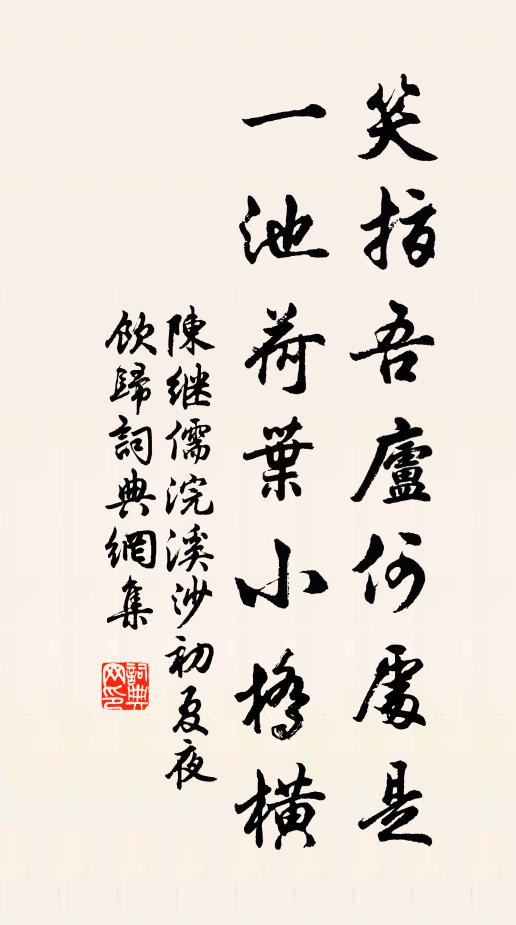 笑指吾廬何處是
一池荷葉小橋橫
陳繼儒浣溪沙初夏夜
飲歸詞典網集
詞典
网印